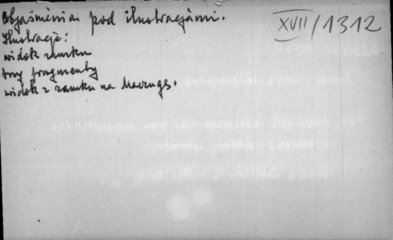 Objaśnienia pod ilustracjami.
XVIII/1312
Ilustracje:
widok zamku
trzy fragmenty
widok z zamku na